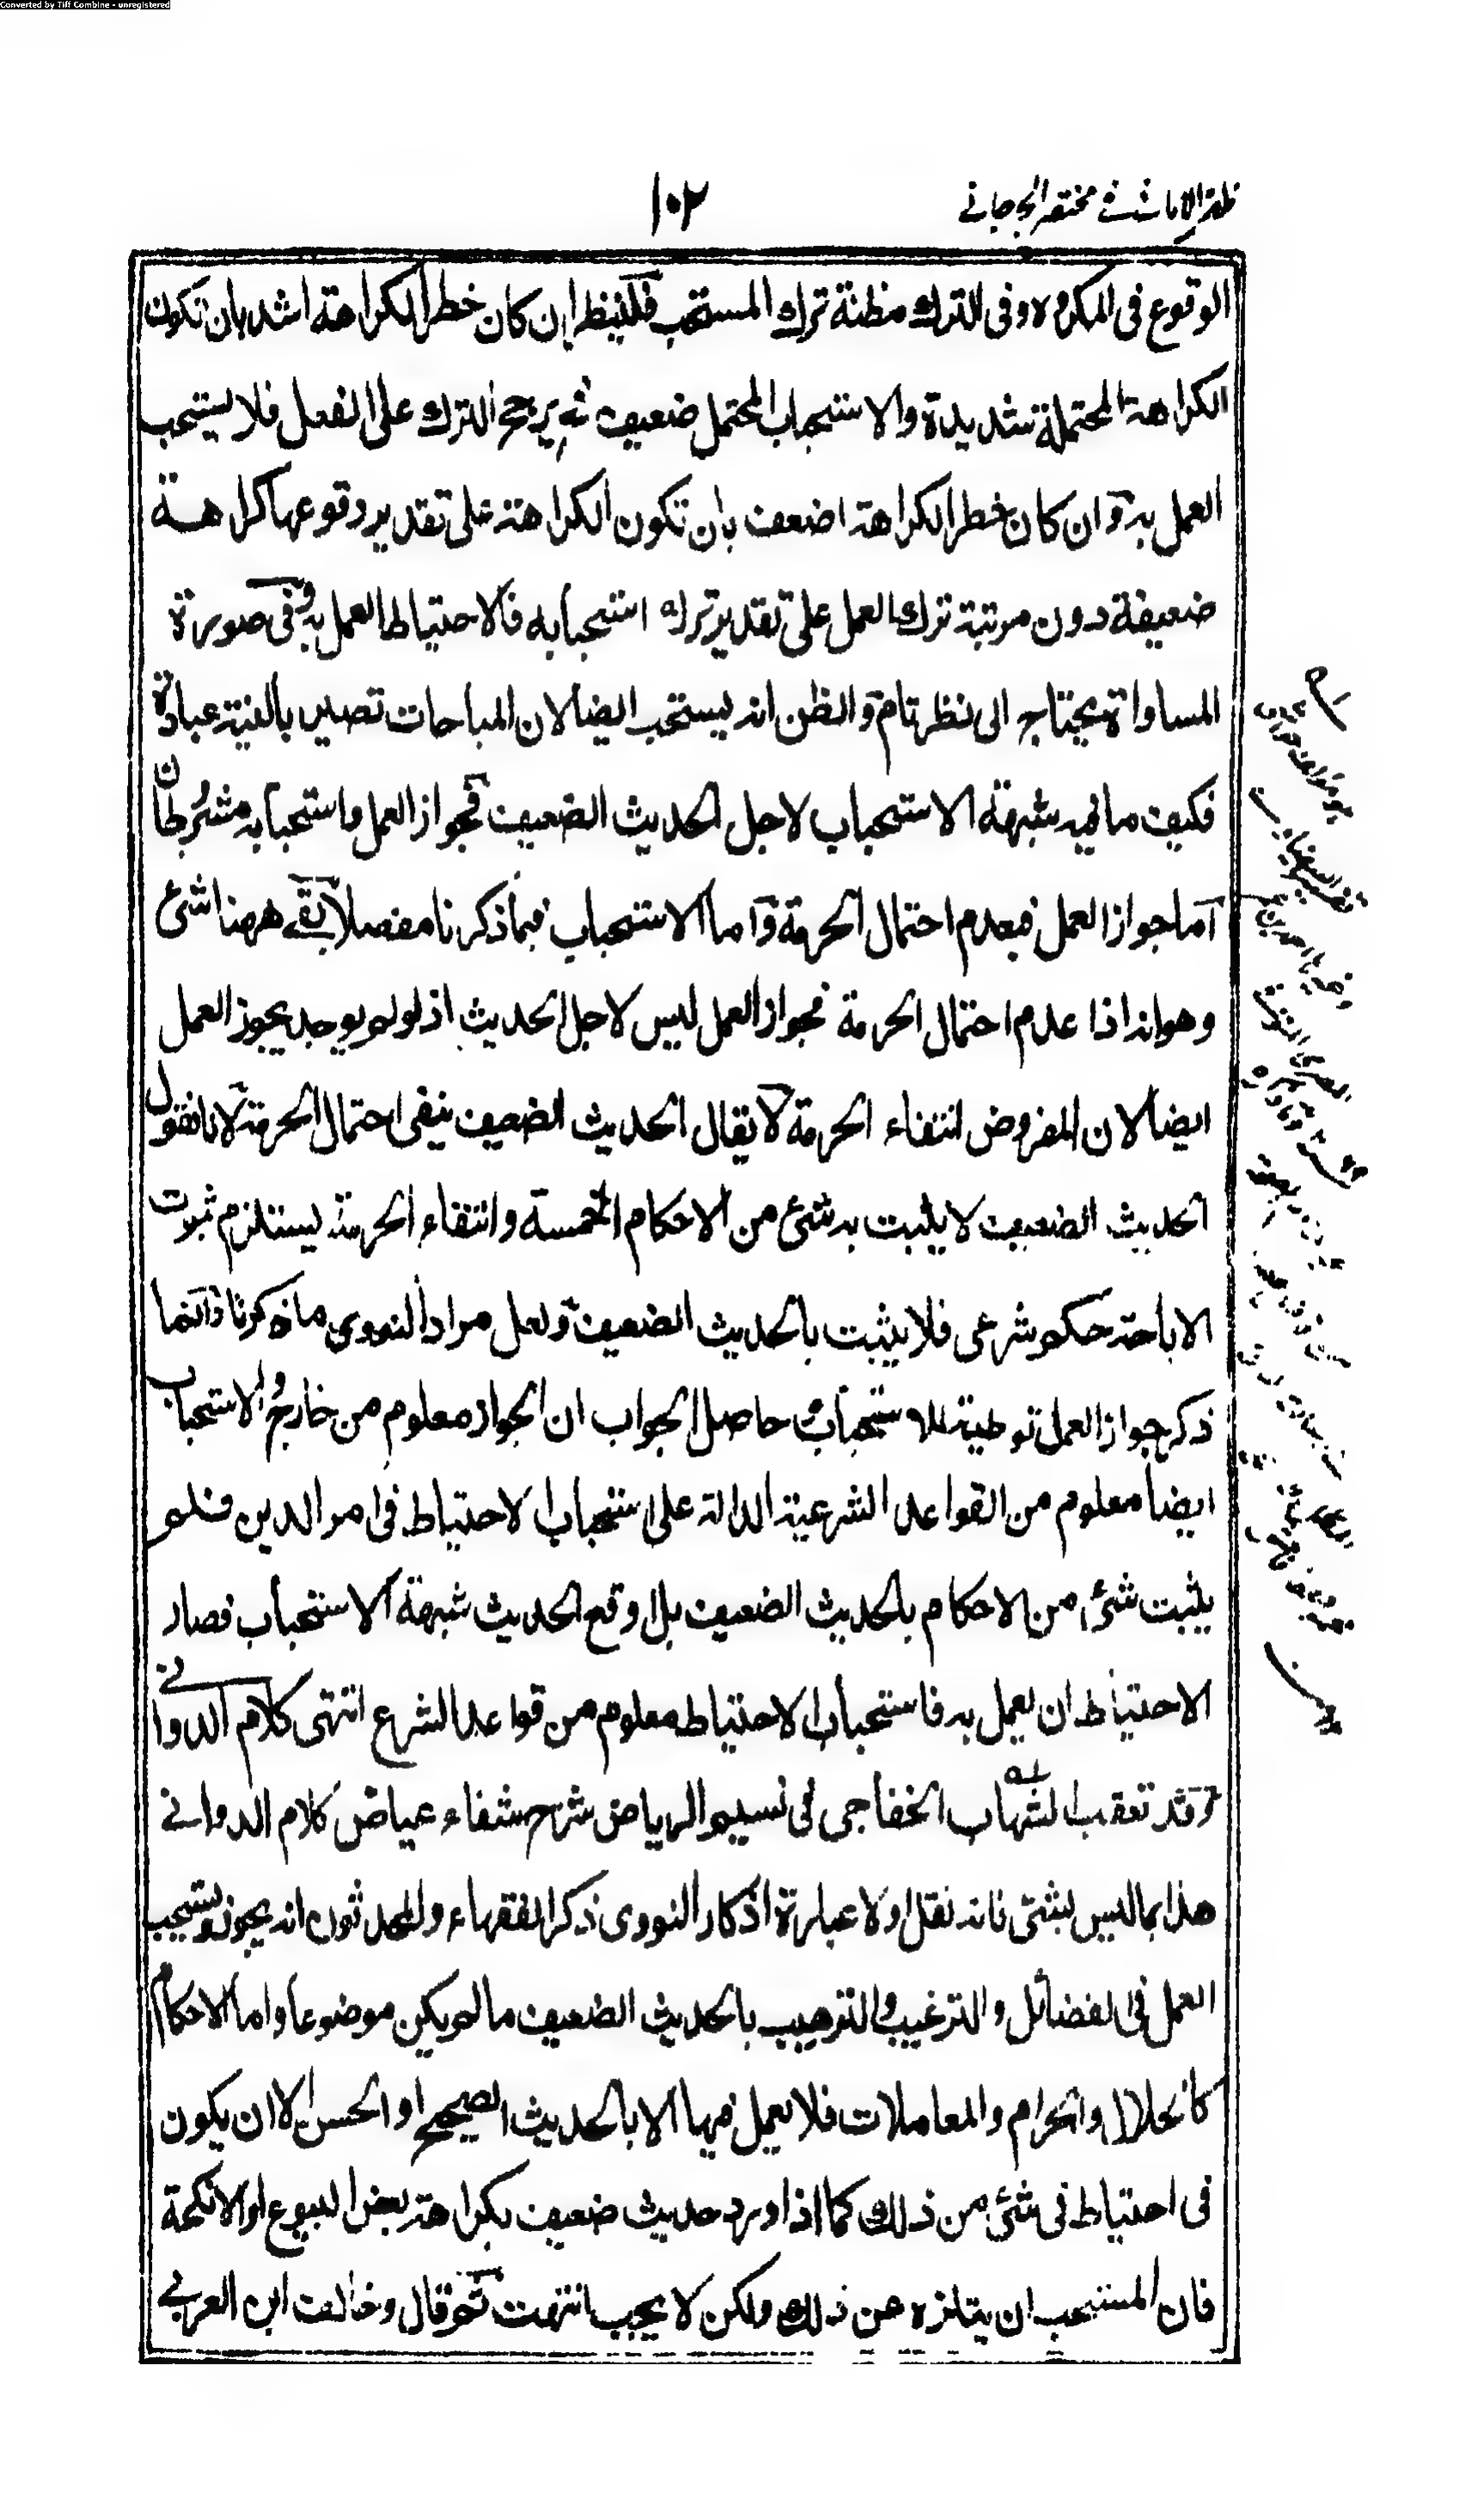 Converted by Tiff Combine - unregistered
ظفر الاماني في مختصر الجرجاني
١٠٢
الوقوع في المكروه وفي الترك مظنة ترك المستحب فلينظر ان كان خطر الكراهة اشد بان تكون
الكراهة المحتملة شديدة والاستحباب المحتمل ضعيف فح يرجح الترك على الفعل فلا يستحب
العمل به وان كان خطر الكراهة اضعف بان تكون الكراهة على تقدير وقوعها كراهة
ضعيفة دون مرتبة ترك العمل على تقدير ترك استحبابه فالاحتياط العمل به وفي صورة
المساواة يحتاج الى نظر تام والظن انه يستحب ايضا لان المباحات تصير بالنية عبادة
فكيف ما فيه شبهة الاستحباب لاجل الحديث الضعيف فجواز العمل واستحبابه مشروطان
اما جواز العمل فبعدم احتمال الحرمة واما الاستحباب فبما ذكرنا مفصلا بقي ههنا شئ
وهو انه اذا عدم احتمال الحرمة فجواز العمل ليس لاجل الحديث اذ لو لم يوجد يجوز العمل
ايضا لان المفروض انتفاء الحرمة لا يقال الحديث الضعيف ينفي احتمال الحرمة لانا نقول
الحديث الضعيف لا يثبت به شئ من الاحكام الخمسة وانتفاء الحرمة يستلزم ثبوت
الاباحة حكم شرعي فلا يثبت بالحديث الضعيف ولعل مراد النووي ما ذكرنا وانما
ذكر جواز العمل توطية للاستحباب حاصل الجواب ان الجواز معلوم من خارج والاستحباب
ايضا معلوم من القواعد الشرعية الدالة على استحباب الاحتياط في امر الدين فلم
يثبت شئ من الاحكام بالحديث الضعيف بل اوقع الحديث شبهة الاستحباب فصار
الاحتياط ان يعمل به فاستحباب الاحتياط معلوم من قواعد الشرع انتهى كلام الدواني
وقد تعقب الشهاب الخفاجي في نسيم الرياض شرح شفاء عياض كلام الدواني
هذا بما ليس بشئ فانه نقل اولا عبارة اذكار النووي ذكر الفقهاء والمحدثون انه يجوز ويستحب
العمل في الفضائل والترغيب والترهيب بالحديث الضعيف ما لم يكن موضوعا واما الاحكام
كالحلال والحرام والمعاملات فلا يعمل فيها الا بالحديث الصحيح او الحسن الا ان يكون
في احتياط في شئ من ذلك كما اذا ورد حديث ضعيف بكراهة بعض البيوع او الانكحة
فان المستحب ان يتنزه عن ذلك ولكن لا يجب انتهت ثم قال وخالف ابن العربي